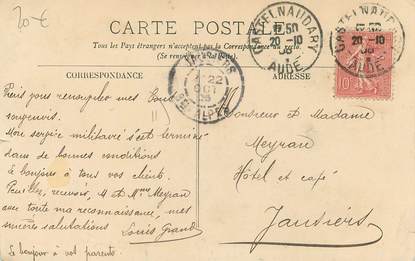 20 €
CARTE POSTALE
Tous les Pays étrangers n'acceptent pas la Correspondance au recto.
CORRESPONDANCE
ADRESSE
CASTELNAUDARY
20 -10
AUDE
CASTELNAUDARY
20 -10
AUDE
22
OCT
10
Mon service militaire s'est terminé
dans de bonnes conditions
à bonjour à tous vos clients.
recevoir, M et Mme Meyran
avec toute ma reconnaissance, mes
sincères salutations Louis Grand
à bonjour à vos parents
Monsieur et Madame
Meyran
Hôtel et café
Jausiers